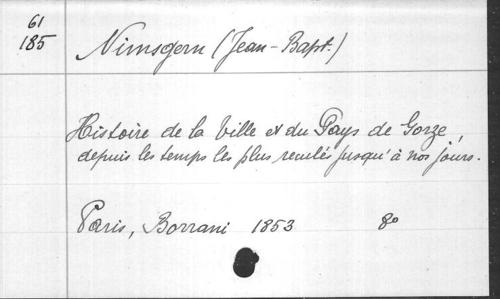 61
185
Nimsgern (Jean-Bapt.)
Histoire de la Ville et du Pays de Gorze,
depuis les temps les plus reculés jusqu'à nos jours.
Paris, Borrani 1853 8°